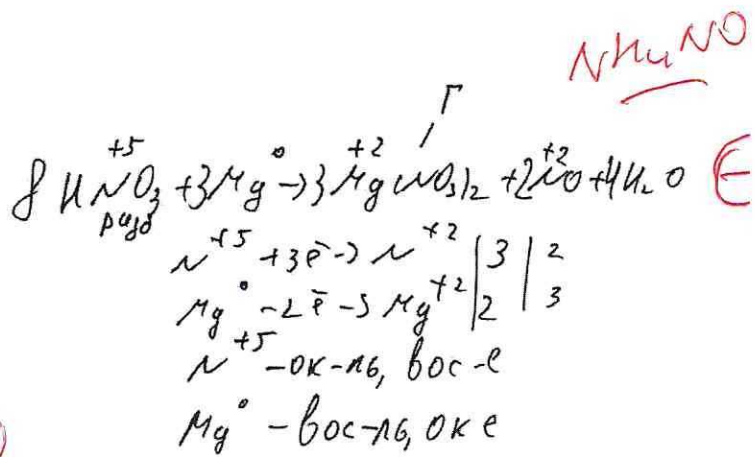 NH4NO
Г
+5 0 +2 +2
8 HNO3 + 3Mg → 3Mg(NO3)2 + 2NO + 4H2O
разб
N+5 +3ē → N+2 | 3 | 2
Mg0 -2ē → Mg+2 | 2 | 3
N+5 - ок-ль, вос-е
Mg0 - вос-ль, ок е